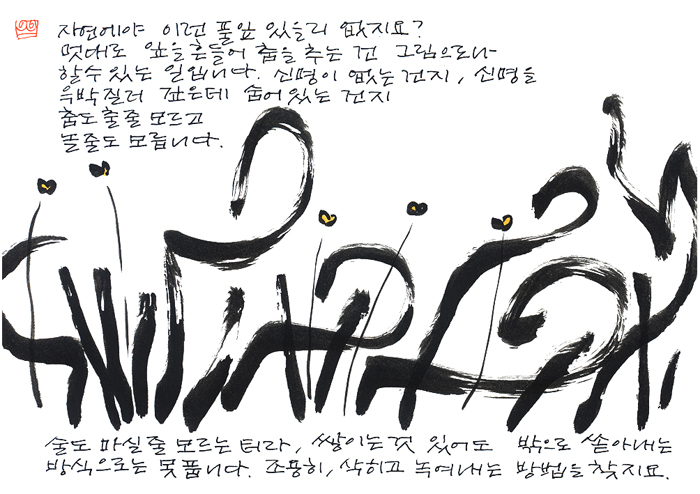 자연에야 이런 풀잎 있을리 없지요?
멋대로 잎을 흔들어 춤을 추는 건 그림으로나
할 수 있는 일입니다. 신명이 없는 건지, 신명을
윽박질러 깊은데 숨어 있는 건지
춤도 출줄 모르고
놀줄도 모릅니다.
술도 마실 줄 모르는 터라, 쌓이는 것 있어도 밖으로 쏟아내는
방식으로는 못 풉니다. 조용히, 삭히고 녹여내는 방법을 찾지요.